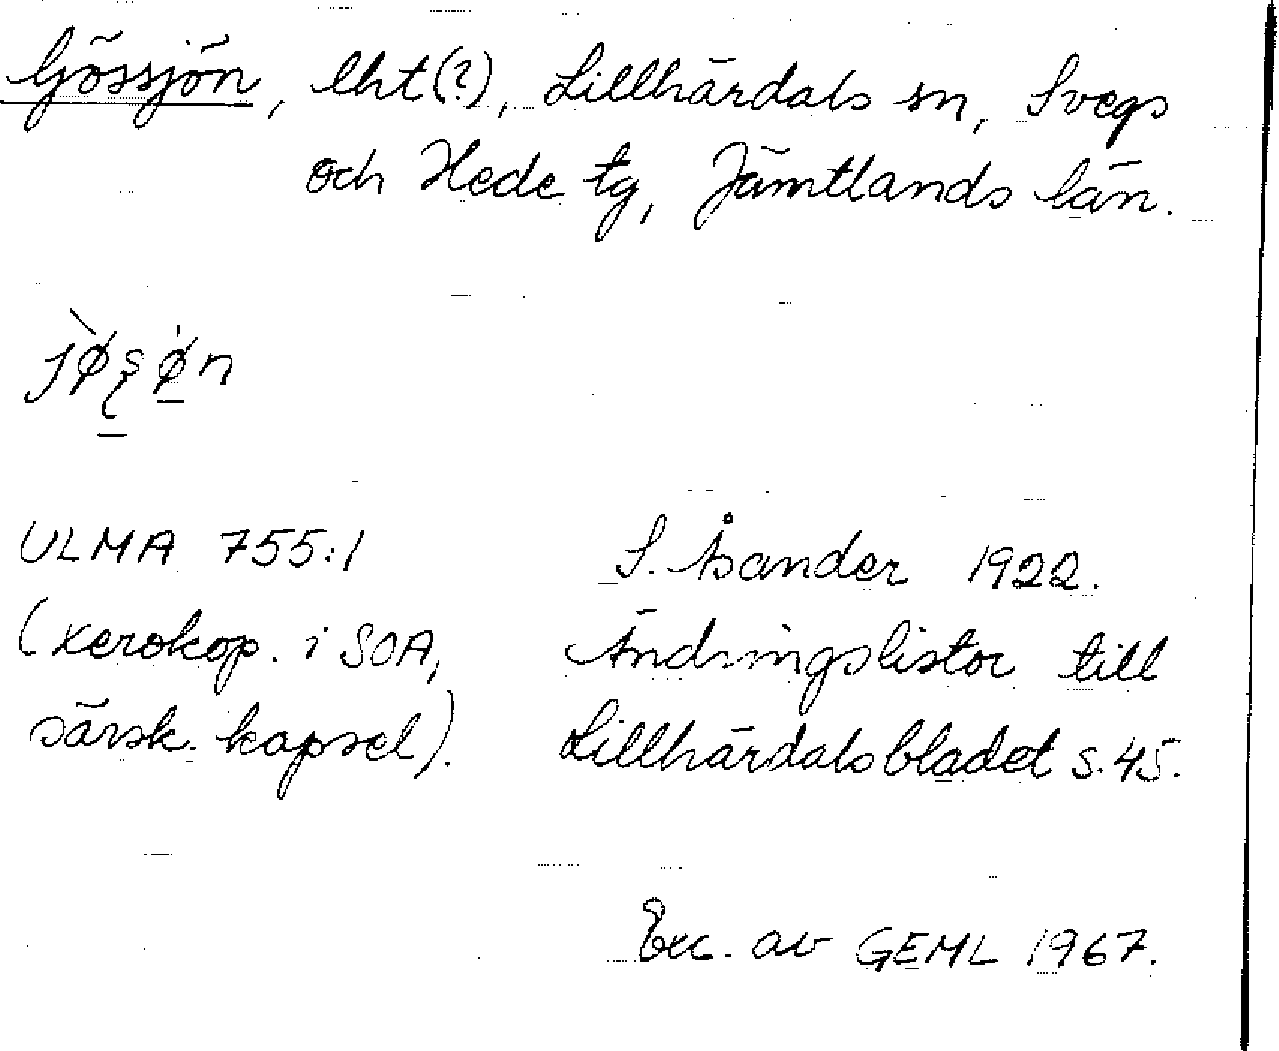 Gössjön, lht(?), Lillhärdals sn, Svegs
och Hede tg, Jämtlands län.
ULMA 755:1 S. Åsander 1922.
(xerokop. i SOA, Ändringslistor till
särsk. kapsel). Lillhärdalsbladet s. 45.
Exc. av GEML 1967.